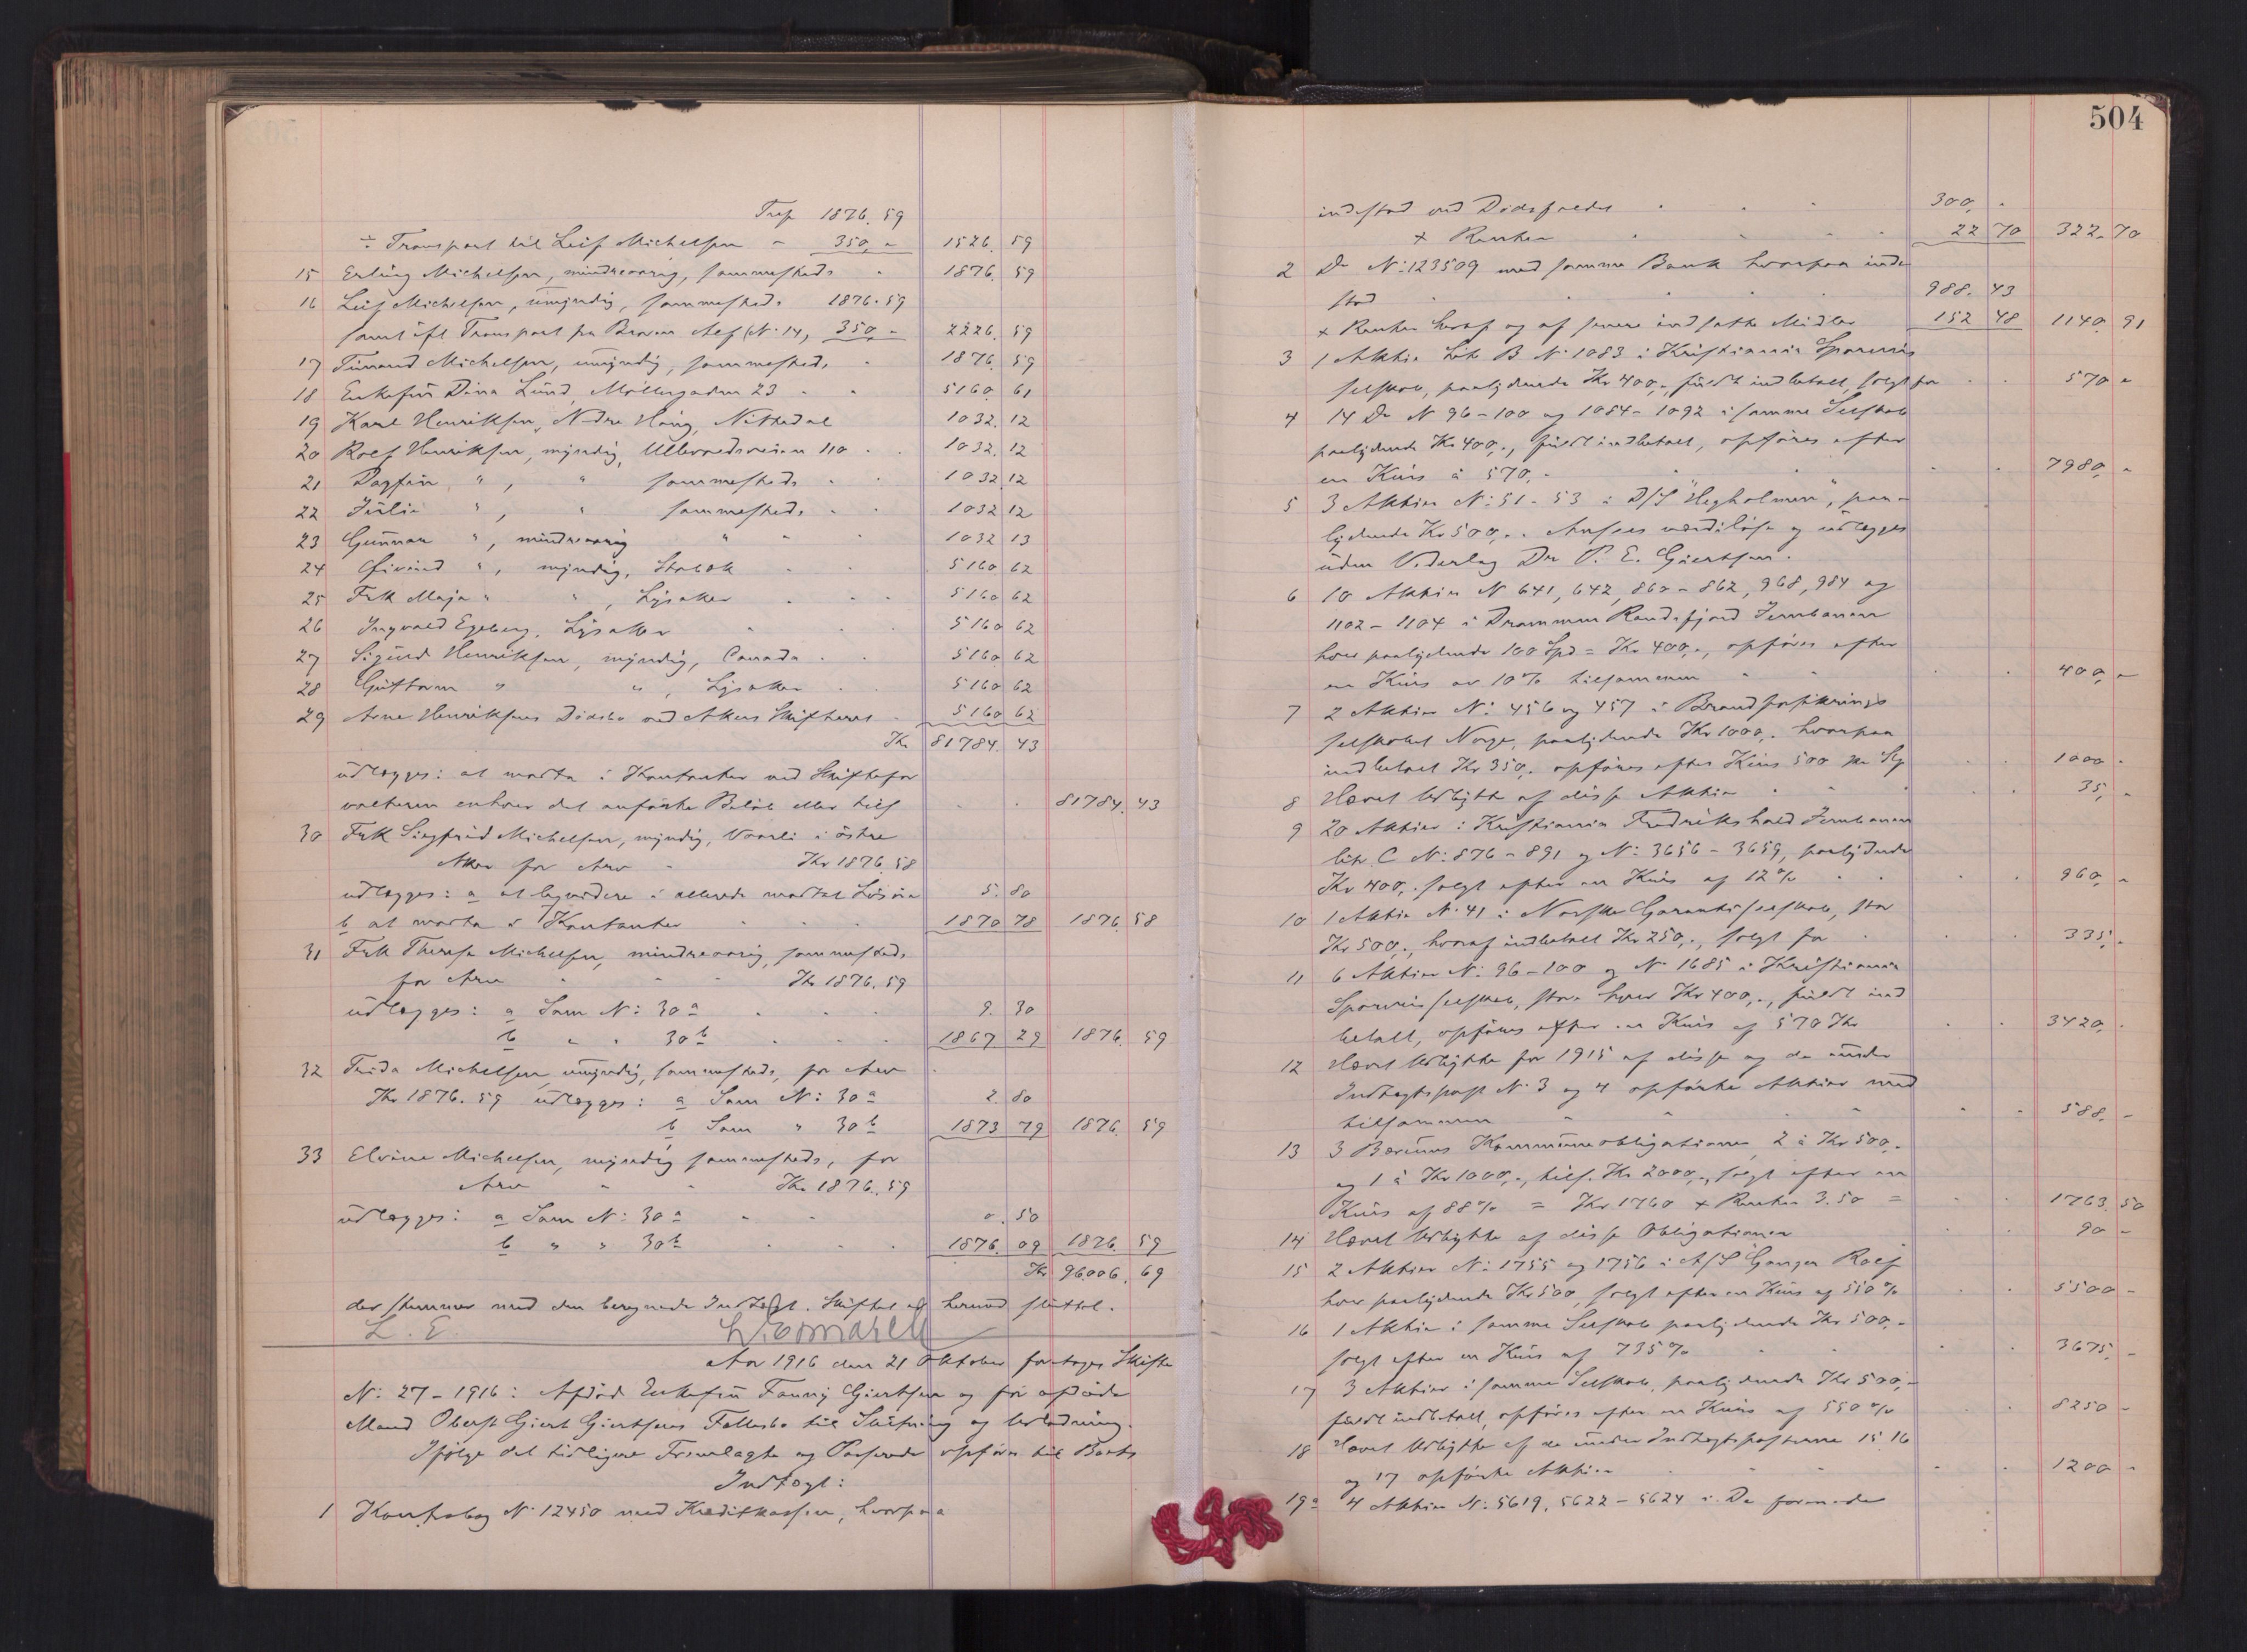 Trsp 1876.59
÷ Transport til Leif Michelsen - 350,- 1526. 59
15 Erling Michelsen, mindreaarig, sammesteds - 1876. 59
16 Leif Michelsen, umyndig, sammesteds 1876.59
samt ifl Transport fra Broren Alf (N: 14, 350,- 2226. 59
17 Michelsen, umyndig, sammesteds - 1876. 59
18 Enkefru Dina Lund, Møllergaden 23 - - 5160. 61
19 Karl Henriksen, Nedre Haug, Nittedal 1032. 12
20 Rolf Henriksen, myndig, Ullevoldsveien 110 - . 1032. 12
21 Dagfin " , " sammesteds - . 1032. 12
22 Julie " , " sammesteds - . 1032 12
23 Gunnar " , mindreaarig " - . 1032 13
24 Øivind " , myndig, Stabæk - . 5160 62
25 Frk Maja " " , Lysaker . - - 5160 62
26 Ingvald Egeberg, Lysaker - . . 5160 62
27 Sigurd Henriksen, myndig, Canada . . 5160. 62
28 Guttorm " " , Lysaker . . 5160 62
29 Arne Henriksens Dødsbo ved Akers Skifteret - 5160 62
Kr 81784. 43
udlægges: at motta i Kontanter ved Skiftefor
valteren enhver det anførte Beløb eller tils - . 81784. 43
30 Frk Siegfrid Michelsen, myndig, Vaarli i østre
Aker for Arv - Kr 1876.58
udlægges: a at likvidere i allerede mottat Løsøre 5. 80
b at motta i Kontanter - . . 1870 78 1876. 58
31 Frk Therese Michelsen, mindreaarig, sammesteds
for Arv - - - Kr 1876.59
udlægges: a Som N: 30 a . . . 9. 30
b " " 30 b . . . 1867 29 1876. 59
32 Frida Michelsen, umyndig, sammesteds, for Arv .
Kr 1876.59 udlægges: a Som N: 30 a 2. 80
b Som " 30 b 1873 79 1876. 59
33 Michelsen, myndig sammesteds, for
Arv - - Kr 1876.59
udlægges: a Som N: 30 a - - 0. 50
b " " 30 b . . . 1876. 09 1876. 59
Kr 96006. 69
der stemmer med den beregnede Indtægt. Skiftet er hermed sluttet.
L. E.
Aar 1916 den 21 Oktober foretoges Skifte
N: 27 - 1916: Afdød Enkefru Fanny Giertsen og før afdøde
Mand Oberst Giert Giertsens Fællesbo til Slutning og Utlodning.
Ifølge det tidligere Fremlagte og Passerede opføres til Boets
Indtægt:
1 Kontrabog N: 12450 med Kreditkassen, hvorpaa
504
indestod ved Dødsfaldet . . . 300, -
+ Renter . . . . 22 70 322. 70
2 Do N: 123509 med samme Bank hvorpaa inde
stod . . . . 988. 43
+ Renter heraf og af senere indsatte Midler 152 48 1140. 91
3 1 Aktie Litr B N: 1083 i Kristiania Sporveis
selskab, paalydende Kr 400,-, fuldt indbetalt, solgt for . . 570 -
4 14 Do N 96-100 og 1084-1092 i samme Selskab
paalydende Kr 400,-, fuldt indbetalt, opføres efter
en Kurs à 570,- . . . 7980, -
5 3 Aktier N: 51-53 i D/S "Hegholmen", paa-
lydende Kr 500,-. Ansees værdiløse og udlægges
uden Vederlag Dr P. E. Giertsen.
6 10 Aktier N 641, 642, 860-862, 968, 984 og
1102-1104 i Drammen Randsfjord Jernbanen
hver paalydende 100 Spd = Kr 400,-, opføres efter
en Kurs av 10% tilsammen - . . 400, -
7 2 Aktier N: 456 og 457 i Brandforsikrings
selskabet Norge, paalydende Kr 1000,- hvorpaa
indbetalt Kr 350,- opføres efter Kurs 500 pr Stk . . 1000 -
8 Hævet Utbytte af disse Aktier - . . 35, -
9 20 Aktier i Kristiania Fredrikshald Jernbanen
litr. C N: 876-891 og N: 3656-3659, paalydende
Kr 400,-, solgt efter en Kurs af 12% - . . 960, -
10 1 Aktie N: 41 i Norske Garantiselskab, stor
Kr 500,-, hvoraf indbetalt Kr 250,-, solgt for . . 335, -
11 6 Aktier N: 96-100 og N: 1685 i Kristiania
Sporveisselskab, store hver Kr 400,-, fuldt ind
betalt, opføres efter en Kurs af 570 Kr . . 3420, -
12 Hævet Utbytte for 1915 af disse og de under
Indtægtspost N: 3 og 4 opførte Aktier med
tilsammen - - - - . . 588. -
13 3 Bærums Kommuneobligationer, 2 à Kr 500,-
og 1 à Kr 1000,-, tils. Kr 2000,-, solgt efter en
Kurs af 88% = Kr 1760 + Renter 3.50 = . . 1763. 50
14 Hævet Utbytte af disse Obligationer . . 90 -
15 2 Aktier N: 1755 og 1756 i A/S Ganger Rolf
hver paalydende Kr 500, solgt efter en Kurs af 550% . . 5500 -
16 1 Aktie i samme Selskab paalydende Kr 500,-
solgt efter en Kurs af 735% - - . . 3675, -
17 3 Aktier i samme Selskab, paalydende Kr 500,-
fuldt indbetalt, opføres efter en Kurs af 550% . . 8250 -
18 Hævet Utbytte af de under Indtægtsposterne 15, 16
og 17 opførte Aktier - - - . . 1200 -
19a 4 Aktier N: 5619, 5622-5624 i De forenede